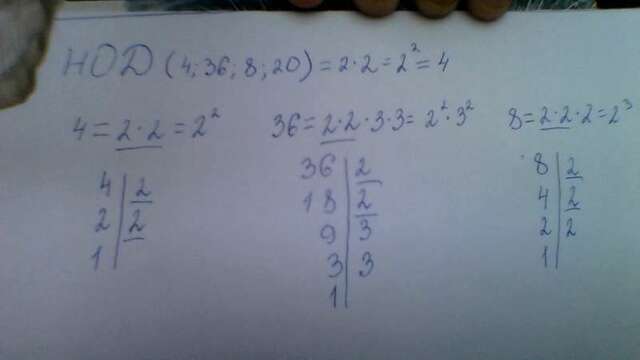 НОД (4; 36; 8; 20) = 2·2 = 2² = 4
4 = 2·2 = 2²
36 = 2·2·3·3 = 2²·3²
8 = 2·2·2 = 2³
4 | 2
2 | 2
1 |
36 | 2
18 | 2
9 | 3
3 | 3
1 |
8 | 2
4 | 2
2 | 2
1 |